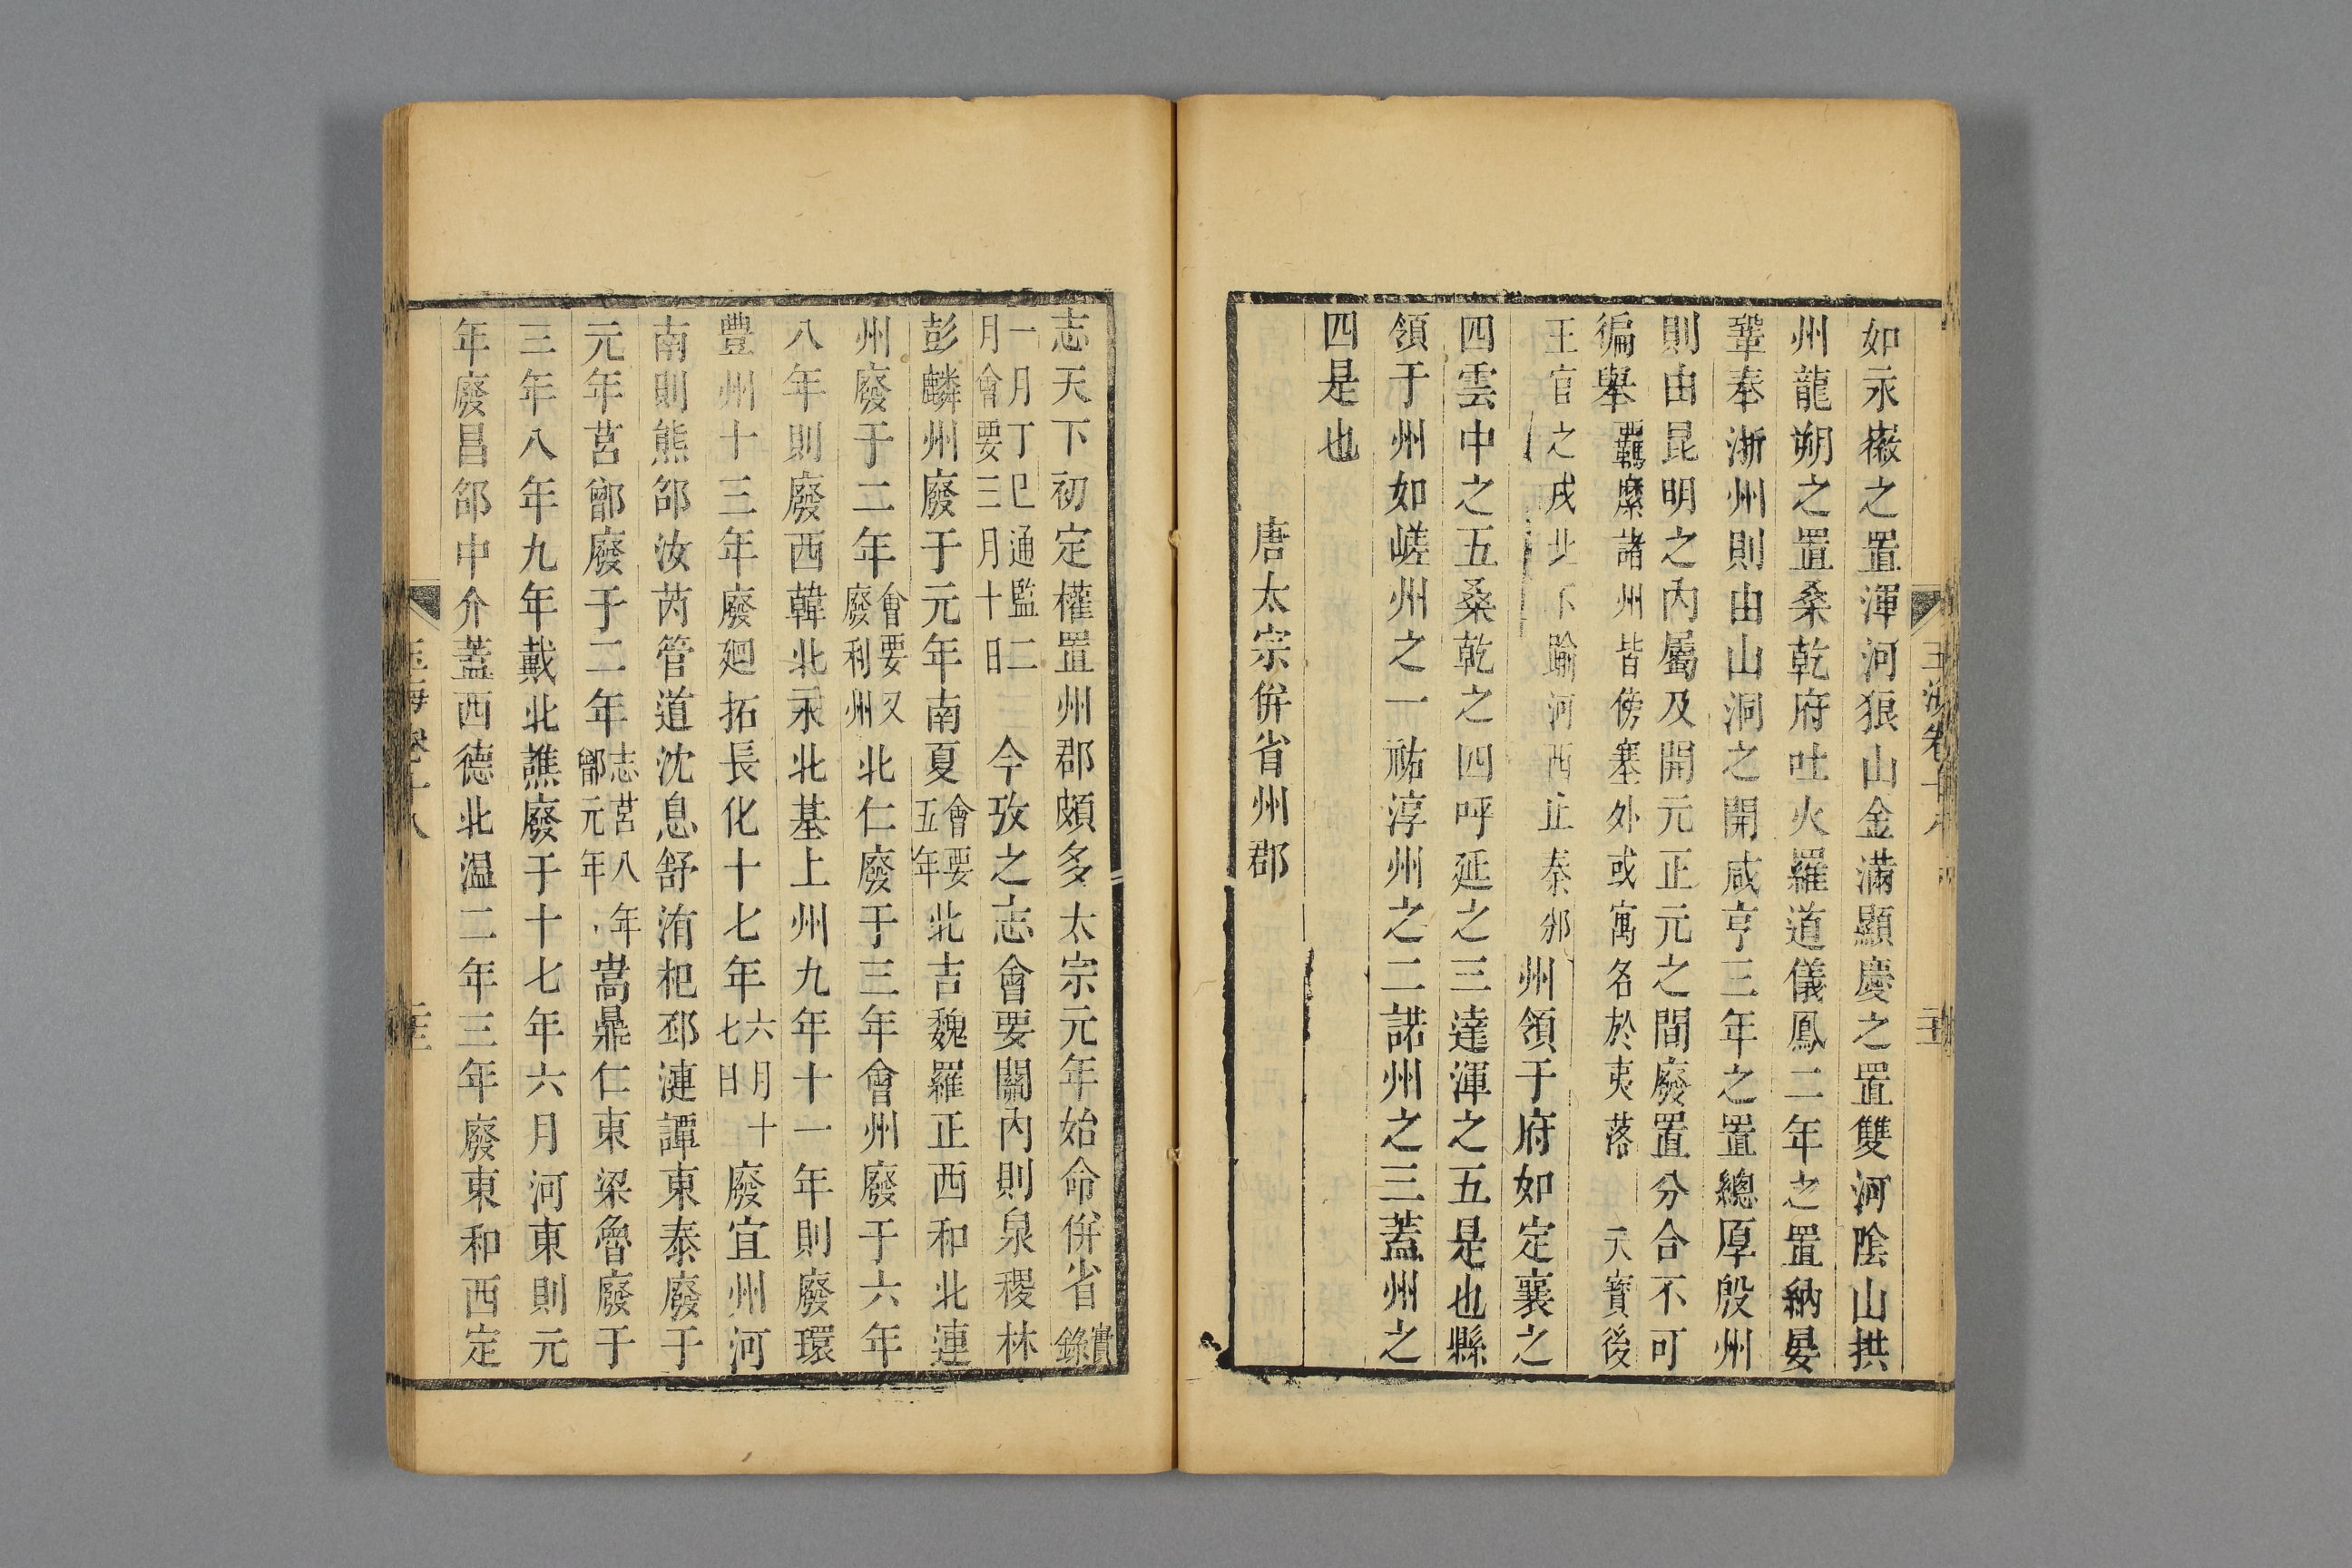 如永徽之置渾河狼山金滿顯慶之置雙河陰山拱
州龍朔之置桑乾府吐火羅道儀鳳二年之置納晏
鞏奉浙州則由山洞之開咸亨三年之置總厚殷州
則由昆明之內屬及開元正元之間廢置分合不可
徧舉羈縻諸州皆傍塞外或寓名於夷落 天寶後
王官之戍北不踰河西止秦邠州領于府如定襄之
四雲中之五桑乾之四呼延之三達渾之五是也縣
領于州如嵯州之一祐淳州之二諾州之三蓋州之
四是也
唐太宗併省州郡
志天下初定權置州郡頗多太宗元年始命併省實錄
一月丁巳通監二月會要三月十日 今攷之志會要關內則泉稷林
彭麟州廢于元年南夏會要五年北吉魏羅正西和北連
州廢于二年會要又廢利州北仁廢于三年會州廢于六年
八年則廢西韓北永北基上州九年十一年則廢環
豐州十三年廢廻拓長化十七年六月十七日廢宜州河
南則熊邵汝芮管道沈息舒洧杞邳漣譚東泰廢于
元年莒鄫廢于二年志莒八年鄫元年嵩鼎仁東梁魯廢于
三年八年九年戴北譙廢于十七年六月河東則元
年廢昌邵中介蓋西德北溫二年三年廢東和西定